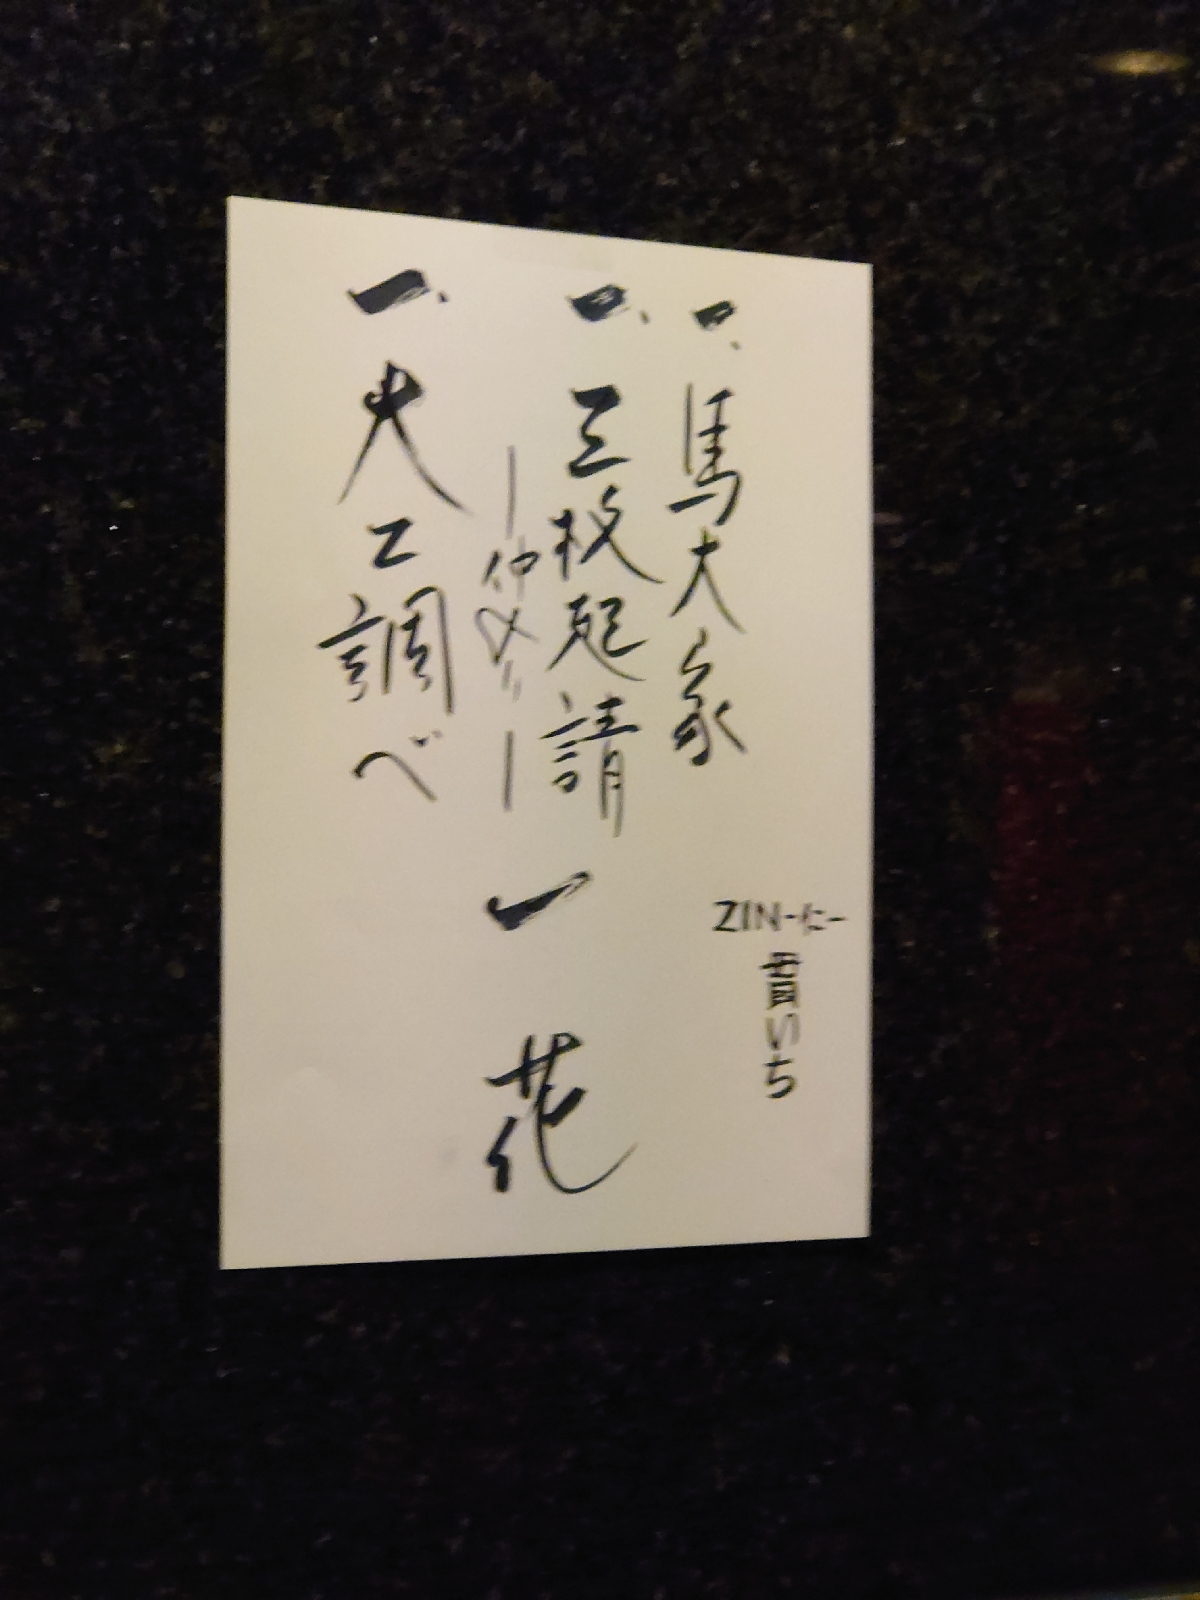 一、馬大家
ZIN-仁-
貢いち
一、三枚起請
｜仲入り｜
一、大工調べ
一花